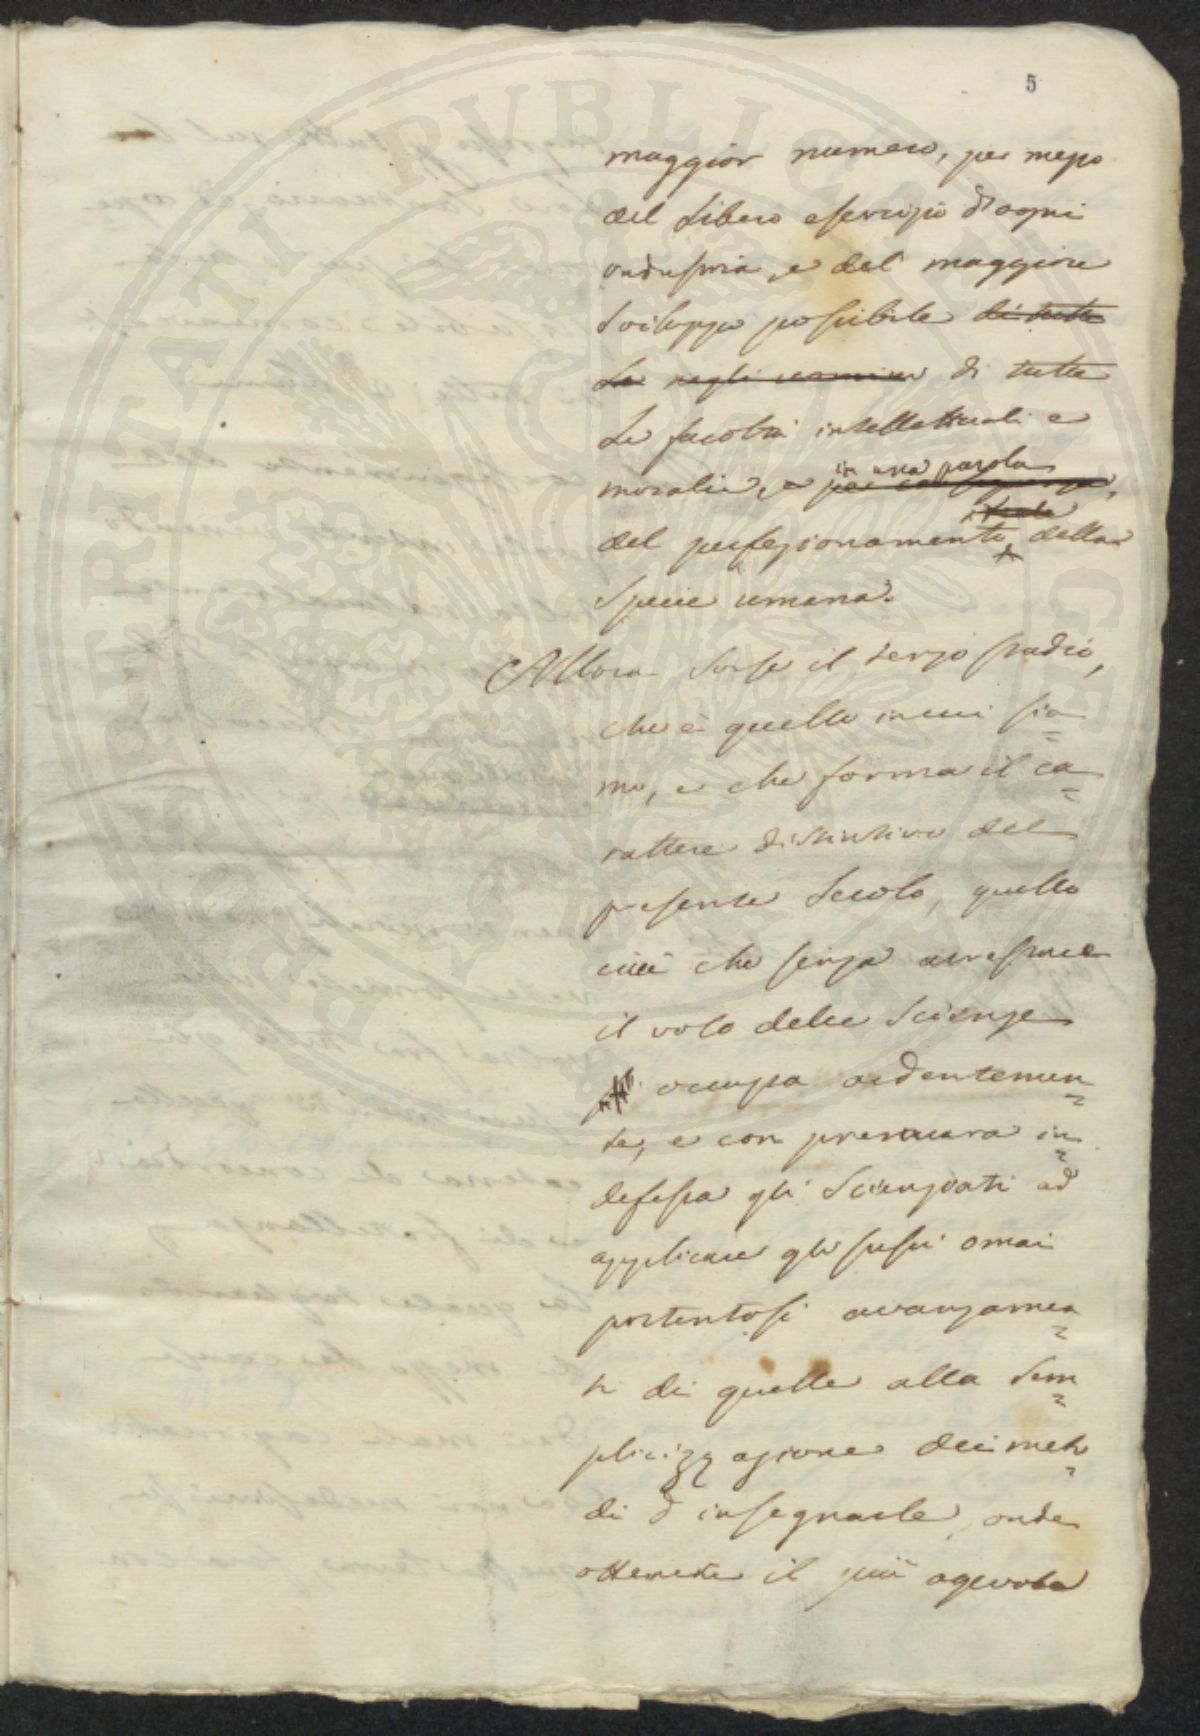 5
maggior numero, per mezzo
del libero esercizio d'ogni
industria, e del maggiore
sviluppo possibile di tutte
le negli uomini di tutte
le facoltà intellettuali e
morali, e in una parola
del perfezionamento della
specie umana.
Allora sorse il terzo stadio,
che è quello in cui sia=
mo, e che forma il ca=
rattere distintivo del
presente secolo, quello
cioè che senza arrestare
il volo delle scienze
occupa ardentemen=
te, e con premura in=
defessa gli scienziati ad
applicare gli stessi omai
portentosi avanzamen=
ti di quelle alla sem=
plicizzazione dei meto=
di d'insegnarle, onde
ottenere il più agevole